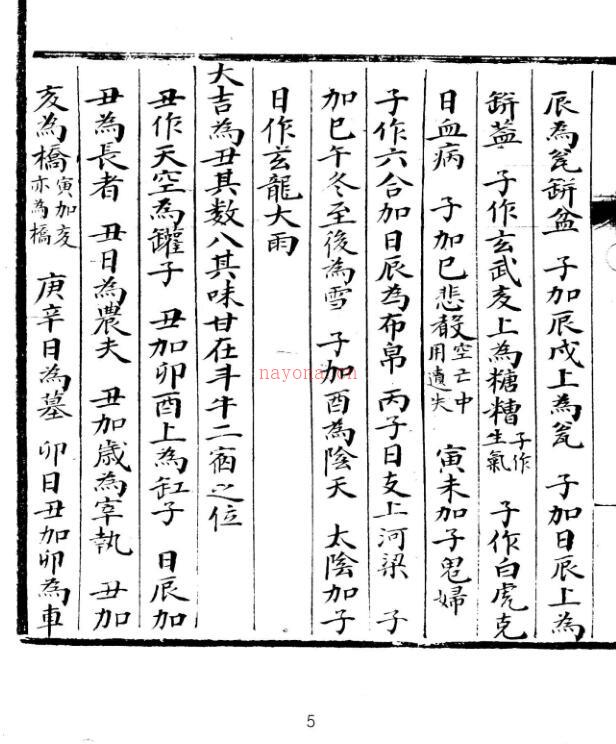 辰為瓮缾盆　子加辰戌上為瓮　子加日辰上為
缾盖　子作玄武亥上為糖糟子作生氣　子作白虎克
日血病　子加巳悲声空亡中用遺失　寅未加子鬼婦
子作六合加日辰為布帛　丙子日支上河梁　子
加巳午冬至後為雪　子加酉為陰天　太陰加子
日作玄龍大雨
大吉為丑其数八其味甘在斗牛二宿之位
丑作天空為罐子　丑加卯酉上為缸子　日辰加
丑為長者　丑日為農夫　丑加歲為宰執　丑加
亥為橋寅加亥亦為橋　庚辛日為墓　卯日丑加卯為車
nayona.cn
5